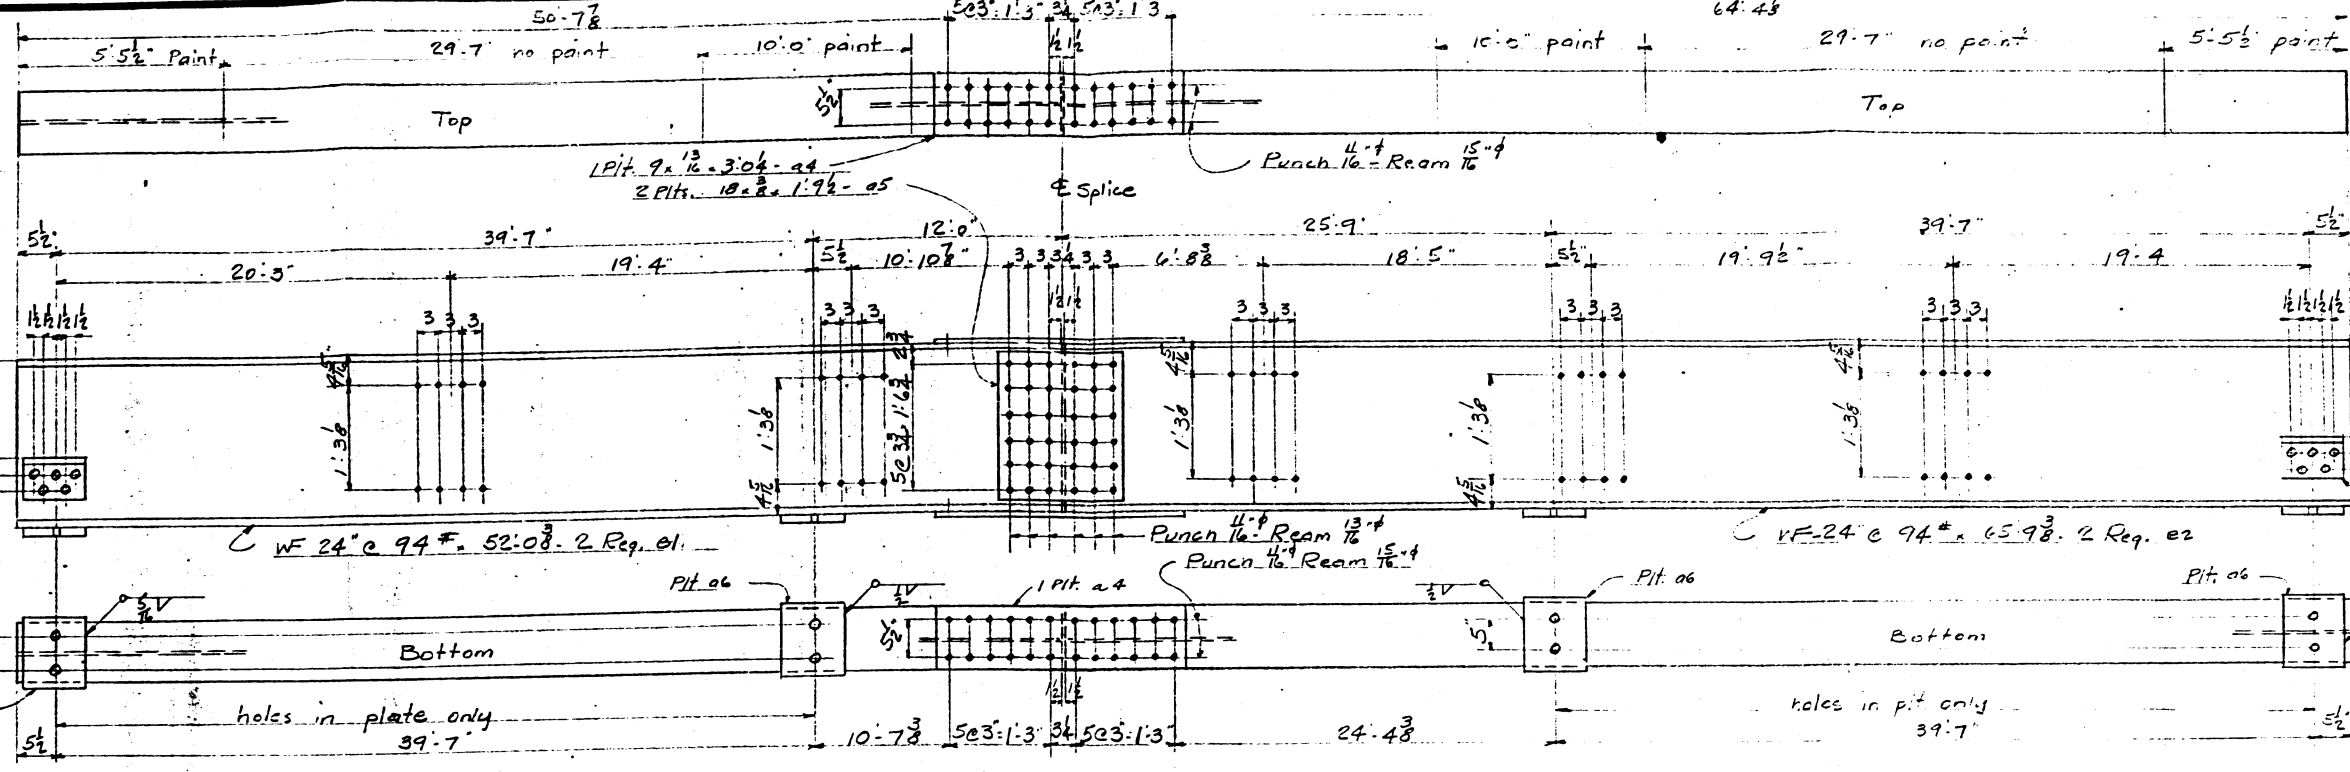 50'-7 7/8
5@3"=1'-3"
3 1/4
5@3=1'3
64'-4 3/8
5'5 1/2" Paint
29'-7" no paint
10'-0" paint
1/2 1 1/2
10'-0" paint
29'-7" no paint
5'-5 1/2 paint
Top
5 1/2"
Top
1 Plt. 9 x 13/16 x 3'-0 1/4 - a4
2 Plts. 18 x 3/8 x 1'-9 1/2 - a5
Punch 11/16"φ - Ream 15/16"φ
℄ Splice
5 1/2"
39'-7"
12'-0"
25'-9"
39'-7"
5 1/2"
20'-3"
19'-4"
5 1/2
10'-10 7/8"
3 3 3 1/4 3 3
6'-8 3/8
18'-5"
5 1/2"
19'-9 1/2"
19'-4
1 1/2 1 1/2 1 1/2 1 1/2
3 3 3
3 3 3
1 1/2 1 1/2
3 3 3
3 3 3
3 3 3
1 1/2 1 1/2 1 1/2 1 1/2
4 5/16
1'-3 1/8
1'-3 1/8
4 5/16
2 3/4
5@3 3/4=1'-6 3/4
4 5/16
1'-3 1/8
1'-3 1/8
4 5/16
4 5/16
1'-3 1/8
WF 24" @ 94# x 52'-0 3/8 - 2 Req. e1.
Punch 11/16"φ - Ream 13/16"φ
Punch 11/16"φ Ream 15/16"φ
WF-24 @ 94# x 65'-9 3/8 - 2 Req. e2
5/16
Plt a6
1/2
1 Plt. a4
1/2
Plt. a6
Plt. a6
Bottom
5 1/2"
5"
Bottom
holes in plate only
1 1/2 1 1/2
holes in plt only
5 1/2
39'-7"
10'-7 3/8
5@3=1'-3"
3 1/4
5@3=1'-3"
24'-4 3/8
39'-7"
5 1/2